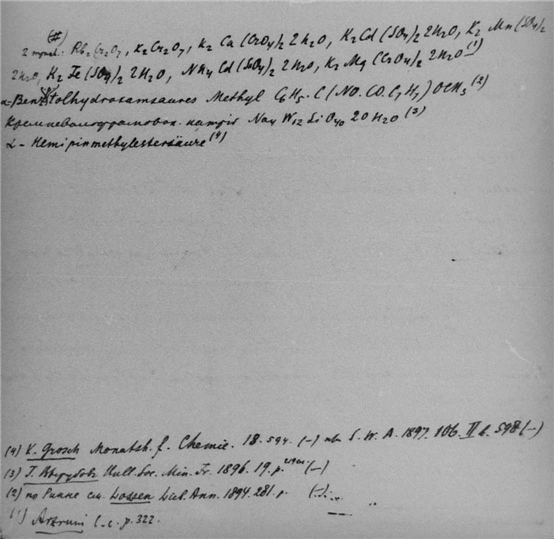 (#)
2 Rb2Cr2O7, K2Cr2O7, K2 Ca (CrO4)2 2H2O, K2Cd (SO4)2 2H2O, K2 Mn (SO4)2
2H2O, K2 Fe (SO4)2 2H2O, NH4 Cd (SO4)2 2H2O, K2 Mg (CrO4)2 2H2O (1)
α-Benztolhydroxamsaures Methyl C6H5.C(NO.CO.C7H7) OCH3 (2)
Кремневольфрамовок. натрiй Na4 W12 Si O40 20 H2O (3)
α - Hemipinmethylestersäure (4)
(4) V. Grosch Monatsh. f. Chemie. 18. 594. (-) S. W. A. 1897. 106. II b. 598 (-)
(3) Г. Вырубовъ Bull. Soc. Min. Fr. 1896. 19. p. (-)
(2) по Ринне см. Lossen Lieb. Ann. 1894. 281. p. (-)
(1) Arzruni l. c. p. 322.